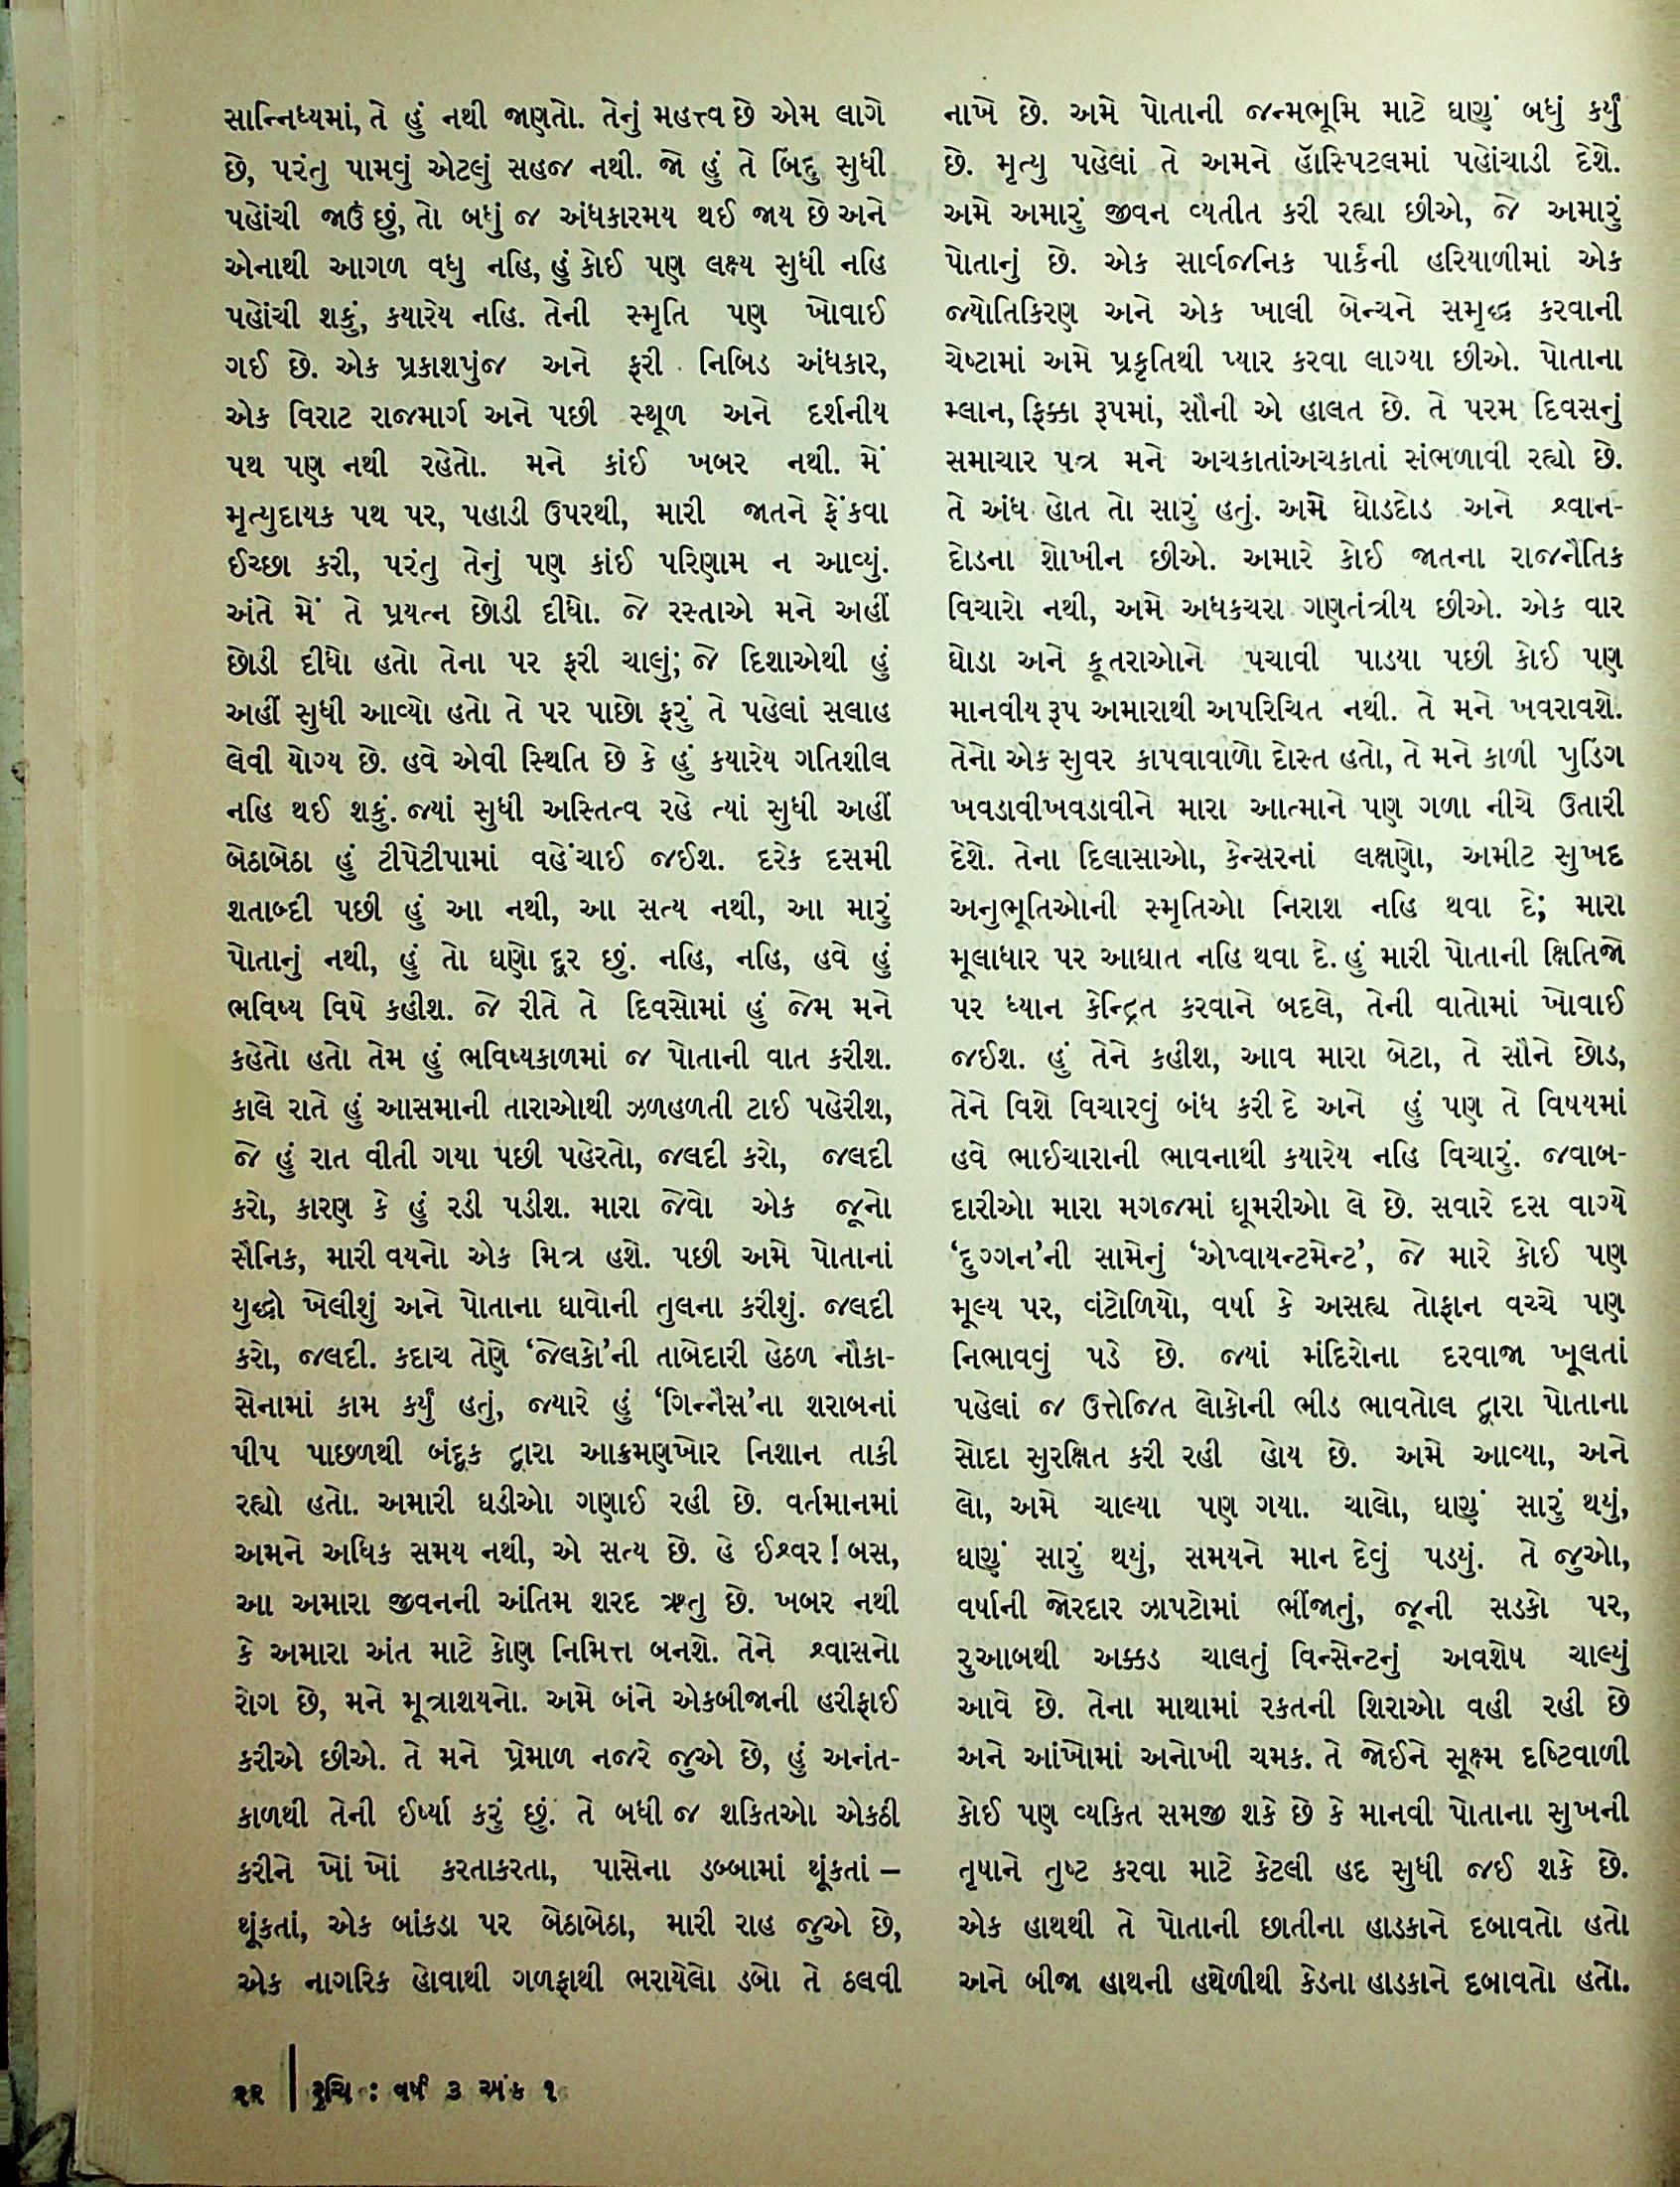 સાન્નિધ્યમાં, તે હું નથી જાણતો. તેનું મહત્ત્વ છે એમ લાગે
છે, પરંતુ પામવું એટલું સહજ નથી. જો હું તે બિંદુ સુધી
પહોંચી જાઉં છું, તો બધું જ અંધકારમય થઈ જાય છે અને
એનાથી આગળ વધુ નહિ, હું કોઈ પણ લક્ષ્ય સુધી નહિ
પહોંચી શકું, કયારેય નહિ. તેની સ્મૃતિ પણ ખોવાઈ
ગઈ છે. એક પ્રકાશપુંજ અને ફરી નિબિડ અંધકાર,
એક વિરાટ રાજમાર્ગ અને પછી સ્થૂળ અને દર્શનીય
પથ પણ નથી રહેતો. મને કાંઈ ખબર નથી. મેં
મૃત્યુદાયક પથ પર, પહાડી ઉપરથી, મારી જાતને ફેંકવા
ઈચ્છા કરી, પરંતુ તેનું પણ કાંઈ પરિણામ ન આવ્યું.
અંતે મેં તે પ્રયત્ન છોડી દીધો. જે રસ્તાએ મને અહીં
છોડી દીધો હતો તેના પર ફરી ચાલું; જે દિશાએથી હું
અહીં સુધી આવ્યો હતો તે પર પાછો ફરું તે પહેલાં સલાહ
લેવી યોગ્ય છે. હવે એવી સ્થિતિ છે કે હું કયારેય ગતિશીલ
નહિ થઈ શકું. જયાં સુધી અસ્તિત્વ રહે ત્યાં સુધી અહીં
બેઠાબેઠા હું ટીપેટીપામાં વહેંચાઈ જઈશ. દરેક દસમી
શતાબ્દી પછી હું આ નથી, આ સત્ય નથી, આ મારું
પોતાનું નથી, હું તો ઘણો દૂર છું. નહિ, નહિ, હવે હું
ભવિષ્ય વિષે કહીશ. જે રીતે તે દિવસોમાં હું જેમ મને
કહેતો હતો તેમ હું ભવિષ્યકાળમાં જ પોતાની વાત કરીશ.
કાલે રાતે હું આસમાની તારાઓથી ઝળહળતી ટાઈ પહેરીશ,
જે હું રાત વીતી ગયા પછી પહેરતો, જલદી કરો, જલદી
કરો, કારણ કે હું રડી પડીશ. મારા જેવો એક જૂનો
સૈનિક, મારી વયનો એક મિત્ર હશે. પછી અમે પોતાનાં
યુદ્ધો ખેલીશું અને પોતાના ઘાવોની તુલના કરીશું. જલદી
કરો, જલદી. કદાચ તેણે ‘જેલકો’ની તાબેદારી હેઠળ નૌકા-
સેનામાં કામ કર્યું હતું, જયારે હું ‘ગિન્નૈસ’ના શરાબનાં
પીપ પાછળથી બંદૂક દ્વારા આક્રમણખોર નિશાન તાકી
રહ્યો હતો. અમારી ઘડીઓ ગણાઈ રહી છે. વર્તમાનમાં
અમને અધિક સમય નથી, એ સત્ય છે. હે ઈશ્વર ! બસ,
આ અમારા જીવનની અંતિમ શરદ ઋતુ છે. ખબર નથી
કે અમારા અંત માટે કોણ નિમિત્ત બનશે. તેને શ્વાસનો
રોગ છે, મને મૂત્રાશયનો. અમે બંને એકબીજાની હરીફાઈ
કરીએ છીએ. તે મને પ્રેમાળ નજરે જુએ છે, હું અનંત-
કાળથી તેની ઈર્ષ્યા કરું છું. તે બધી જ શકિતઓ એકઠી
કરીને ખોં ખોં કરતાકરતા, પાસેના ડબ્બામાં થૂંકતાં –
થૂંકતાં, એક બાંકડા પર બેઠાબેઠા, મારી રાહ જુએ છે,
એક નાગરિક હોવાથી ગળફાથી ભરાયેલો ડબો તે ઠલવી
નાખે છે. અમે પોતાની જન્મભૂમિ માટે ઘણું બધું કર્યું
છે. મૃત્યુ પહેલાં તે અમને હૉસ્પિટલમાં પહોંચાડી દેશે.
અમે અમારું જીવન વ્યતીત કરી રહ્યા છીએ, જે અમારું
પોતાનું છે. એક સાર્વજનિક પાર્કની હરિયાળીમાં એક
જ્યોતિકિરણ અને એક ખાલી બેન્ચને સમૃદ્ધ કરવાની
ચેષ્ટામાં અમે પ્રકૃતિથી પ્યાર કરવા લાગ્યા છીએ. પોતાના
મ્લાન, ફિક્કા રૂપમાં, સૌની એ હાલત છે. તે પરમ દિવસનું
સમાચાર પત્ર મને અચકાતાંઅચકાતાં સંભળાવી રહ્યો છે.
તે અંધ હોત તો સારું હતું. અમે ઘોડદોડ અને શ્વાન-
દોડના શોખીન છીએ. અમારે કોઈ જાતના રાજનૈતિક
વિચારો નથી, અમે અધકચરા ગણતંત્રીય છીએ. એક વાર
ઘોડા અને કૂતરાઓને પચાવી પાડયા પછી કોઈ પણ
માનવીય રૂપ અમારાથી અપરિચિત નથી. તે મને ખવરાવશે.
તેનો એક સુવર કાપવાવાળો દોસ્ત હતો, તે મને કાળી પુડિંગ
ખવડાવીખવડાવીને મારા આત્માને પણ ગળા નીચે ઉતારી
દેશે. તેના દિલાસાઓ, કેન્સરનાં લક્ષણો, અમીટ સુખદ
અનુભૂતિઓની સ્મૃતિઓ નિરાશ નહિ થવા દે; મારા
મૂલાધાર પર આઘાત નહિ થવા દે. હું મારી પોતાની ક્ષિતિજો
પર ધ્યાન કેન્દ્રિત કરવાને બદલે, તેની વાતોમાં ખોવાઈ
જઈશ. હું તેને કહીશ, આવ મારા બેટા, તે સૌને છોડ,
તેને વિશે વિચારવું બંધ કરી દે અને હું પણ તે વિષયમાં
હવે ભાઈચારાની ભાવનાથી કયારેય નહિ વિચારું. જવાબ-
દારીઓ મારા મગજમાં ઘૂમરીઓ લે છે. સવારે દસ વાગ્યે
‘દુગ્ગન’ની સામેનું ‘એપ્વાયન્ટમેન્ટ’, જે મારે કોઈ પણ
મૂલ્ય પર, વંટોળિયો, વર્ષા કે અસહ્ય તોફાન વચ્ચે પણ
નિભાવવું પડે છે. જયાં મંદિરોના દરવાજા ખૂલતાં
પહેલાં જ ઉત્તેજિત લોકોની ભીડ ભાવતોલ દ્વારા પોતાના
સોદા સુરક્ષિત કરી રહી હોય છે. અમે આવ્યા, અને
લો, અમે ચાલ્યા પણ ગયા. ચાલો, ઘણું સારું થયું,
ઘણું સારું થયું, સમયને માન દેવું પડયું. તે જુઓ,
વર્ષાની જોરદાર ઝાપટોમાં ભીંજાતું, જૂની સડકો પર,
રુઆબથી અક્કડ ચાલતું વિન્સેન્ટનું અવશેષ ચાલ્યું
આવે છે. તેના માથામાં રકતની શિરાઓ વહી રહી છે
અને આંખોમાં અનોખી ચમક. તે જોઈને સૂક્ષ્મ દષ્ટિવાળી
કોઈ પણ વ્યકિત સમજી શકે છે કે માનવી પોતાના સુખની
તૃષાને તુષ્ટ કરવા માટે કેટલી હદ સુધી જઈ શકે છે.
એક હાથથી તે પોતાની છાતીના હાડકાને દબાવતો હતો
અને બીજા હાથની હથેળીથી કેડના હાડકાને દબાવતો હતો.
૨૨ | રુચિ : વર્ષ ૩ અંક ૧